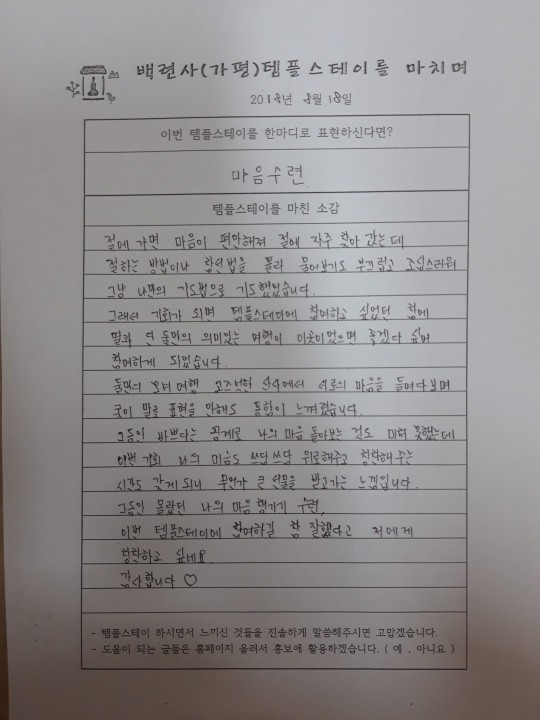 백련사(가평)템플스테이를 마치며
2018년 8월 18일
이번 템플스테이를 한마디로 표현하신다면?
마음수련
템플스테이를 마친 소감
절에가면 마음이 편안해져 절에 자주 찾아 갔는데
절하는 방법이나 참선법을 몰라 물어보기도 부끄럽고 조심스러워
그냥 나만의 기도법으로 기도했었습니다.
그래서 기회가 되면 템플스테이에 참여하고 싶었던 참에
딸과 단 둘만의 의미있는 여행이 이곳이었으면 좋겠다 싶어
참여하게 되었습니다.
둘만의 모녀여행 고즈넉한 산사에서 서로의 마음을 들여다보며
굳이 말로 표현을 안해도 통함이 느껴졌습니다.
그동안 바쁘다는 핑계로 나의 마음 돌아보는 것도 미처 못했는데
이번 기회 나의 마음도 쓰담쓰담 위로해주고 칭찬해주는
시간도 갖게되니 무언가 큰 선물을 받고가는 느낌입니다.
그동안 몰랐던 나의 마음챙기기 수련,
이번 템플스테이에 참여하길 참 잘했다고 저에게
칭찬하고 싶네요.
감사합니다 ♡
- 템플스테이 하시면서 느끼신 것들을 진솔하게 말씀해주시면 고맙겠습니다.
- 도움이 되는 글들은 홈페이지 올려서 홍보에 활용하겠습니다. ( 예 , 아니요 )